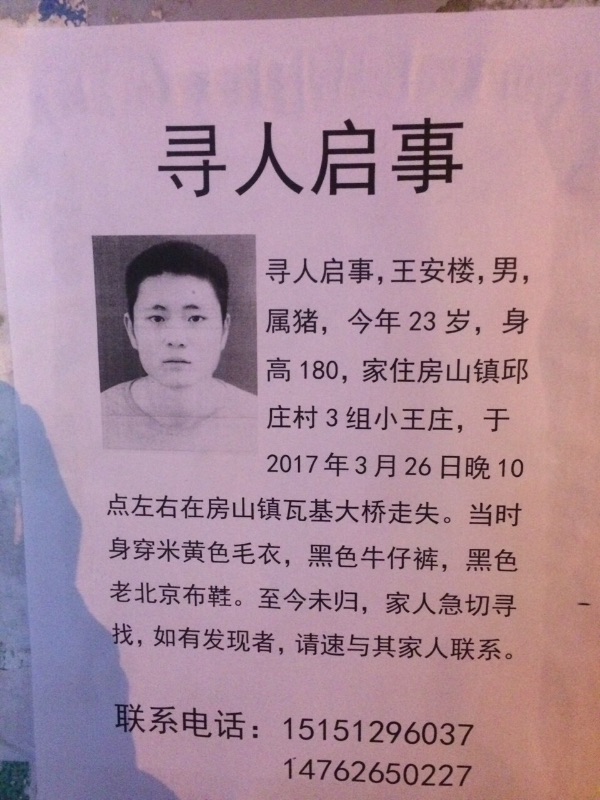 寻人启事
寻人启事,王安楼,男,
属猪，今年23岁，身
高180，家住房山镇邱
庄村3组小王庄，于
2017年3月26日晚10
点左右在房山镇瓦基大桥走失。当时
身穿米黄色毛衣，黑色牛仔裤，黑色
老北京布鞋。至今未归，家人急切寻
找，如有发现者，请速与其家人联系。
联系电话：15151296037
14762650227